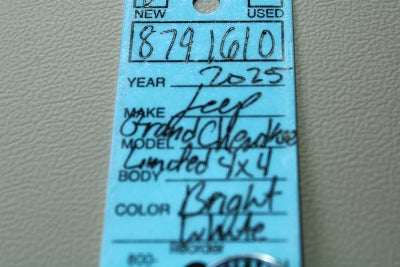 NEW USED
8791610
YEAR 2025
MAKE Jeep
MODEL Grand Cherokee
BODY Limited 4x4
COLOR Bright
White
800-